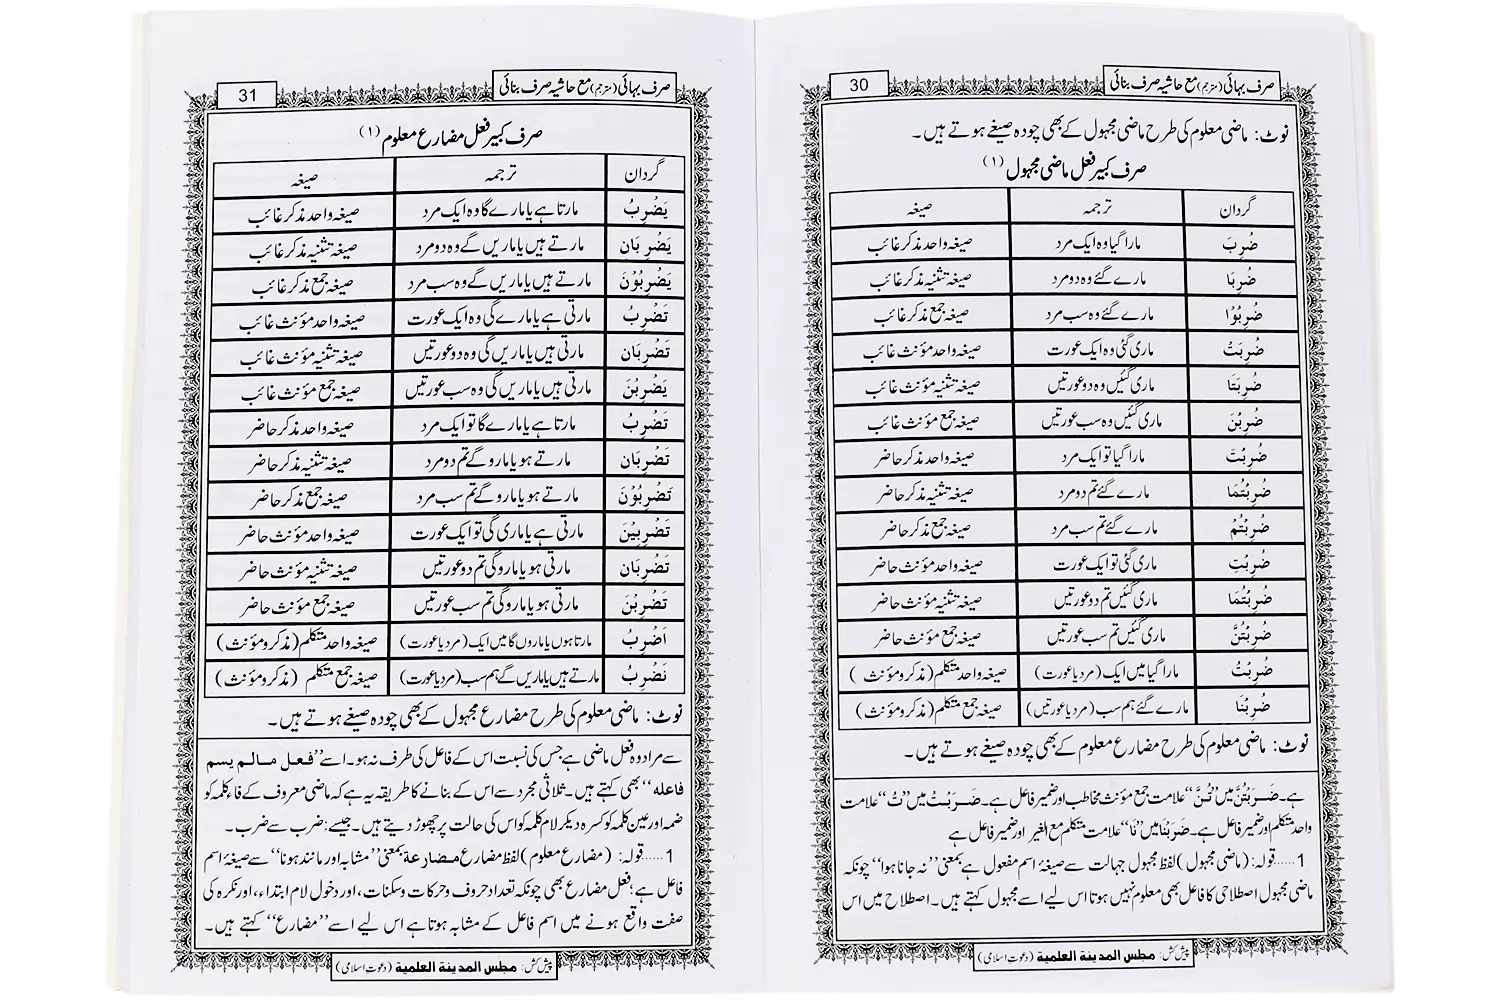 30
صرف بہائی (مترجم) مع حاشیہ صرف بنائی
نوٹ: ماضی معلوم کی طرح ماضی مجہول کے بھی چودہ صیغے ہوتے ہیں۔
صرف کبیر فعل ماضی مجہول (۱)
گردان ترجمہ صیغہ
ضُرِبَ مارا گیا وہ ایک مرد صیغہ واحد مذکر غائب
ضُرِبَا مارے گئے وہ دو مرد صیغہ تثنیہ مذکر غائب
ضُرِبُوْا مارے گئے وہ سب مرد صیغہ جمع مذکر غائب
ضُرِبَتْ ماری گئی وہ ایک عورت صیغہ واحد مؤنث غائب
ضُرِبَتَا ماری گئیں وہ دو عورتیں صیغہ تثنیہ مؤنث غائب
ضُرِبْنَ ماری گئیں وہ سب عورتیں صیغہ جمع مؤنث غائب
ضُرِبْتَ مارا گیا تو ایک مرد صیغہ واحد مذکر حاضر
ضُرِبْتُمَا مارے گئے تم دو مرد صیغہ تثنیہ مذکر حاضر
ضُرِبْتُمْ مارے گئے تم سب مرد صیغہ جمع مذکر حاضر
ضُرِبْتِ ماری گئی تو ایک عورت صیغہ واحد مؤنث حاضر
ضُرِبْتُمَا ماری گئیں تم دو عورتیں صیغہ تثنیہ مؤنث حاضر
ضُرِبْتُنَّ ماری گئیں تم سب عورتیں صیغہ جمع مؤنث حاضر
ضُرِبْتُ مارا گیا میں ایک (مرد یا عورت) صیغہ واحد متکلم (مذکر و مؤنث)
ضُرِبْنَا مارے گئے ہم سب (مرد یا عورتیں) صیغہ جمع متکلم (مذکر و مؤنث)
نوٹ: ماضی معلوم کی طرح مضارع معلوم کے بھی چودہ صیغے ہوتے ہیں۔
ہے۔ ضَرَبْتُنَّ میں ”تُنَّ“ علامت جمع مؤنث مخاطب اور ضمیر فاعل ہے۔ ضَرَبْتُ میں ”تُ“ علامت
واحد متکلم اور ضمیر فاعل ہے۔ ضَرَبْنَا میں ”نَا“ علامت متکلم مع الغیر اور ضمیر فاعل ہے
1.....قولہ: (ماضی مجہول) لفظ مجہول جہالت سے صیغۂ اسم مفعول ہے بمعنی ”نہ جانا ہوا“ چونکہ
ماضی مجہول اصطلاحی کا فاعل بھی معلوم نہیں ہوتا اس لیے اسے مجہول کہتے ہیں۔ اصطلاح میں اس
پیش کش: مجلس المدینة العلمیة (دعوت اسلامی)
31
صرف بہائی (مترجم) مع حاشیہ صرف بنائی
صرف کبیر فعل مضارع معلوم (۱)
گردان ترجمہ صیغہ
یَضْرِبُ مارتا ہے یا مارے گا وہ ایک مرد صیغہ واحد مذکر غائب
یَضْرِبَانِ مارتے ہیں یا ماریں گے وہ دو مرد صیغہ تثنیہ مذکر غائب
یَضْرِبُوْنَ مارتے ہیں یا ماریں گے وہ سب مرد صیغہ جمع مذکر غائب
تَضْرِبُ مارتی ہے یا مارے گی وہ ایک عورت صیغہ واحد مؤنث غائب
تَضْرِبَانِ مارتی ہیں یا ماریں گی وہ دو عورتیں صیغہ تثنیہ مؤنث غائب
یَضْرِبْنَ مارتی ہیں یا ماریں گی وہ سب عورتیں صیغہ جمع مؤنث غائب
تَضْرِبُ مارتا ہے یا مارے گا تو ایک مرد صیغہ واحد مذکر حاضر
تَضْرِبَانِ مارتے ہو یا مارو گے تم دو مرد صیغہ تثنیہ مذکر حاضر
تَضْرِبُوْنَ مارتے ہو یا مارو گے تم سب مرد صیغہ جمع مذکر حاضر
تَضْرِبِیْنَ مارتی ہے یا ماری گی تو ایک عورت صیغہ واحد مؤنث حاضر
تَضْرِبَانِ مارتی ہو یا مارو گی تم دو عورتیں صیغہ تثنیہ مؤنث حاضر
تَضْرِبْنَ مارتی ہو یا مارو گی تم سب عورتیں صیغہ جمع مؤنث حاضر
اَضْرِبُ مارتا ہوں یا ماروں گا میں ایک (مرد یا عورت) صیغہ واحد متکلم (مذکر و مؤنث)
نَضْرِبُ مارتے ہیں یا ماریں گے ہم سب (مرد یا عورت) صیغہ جمع متکلم (مذکر و مؤنث)
نوٹ: ماضی معلوم کی طرح مضارع مجہول کے بھی چودہ صیغے ہوتے ہیں۔
سے مراد وہ فعل ماضی ہے جس کی نسبت اس کے فاعل کی طرف نہ ہو۔ اسے ”فعل مالم یسم
فاعله“ بھی کہتے ہیں۔ ثلاثی مجرد سے اس کے بنانے کا طریقہ یہ ہے کہ ماضی معروف کے فاء کلمہ کو
ضمہ اور عین کلمہ کو کسرہ دیکر لام کلمہ کو اس کی حالت پر چھوڑ دیتے ہیں۔ جیسے: ضرب سے ضرب۔
1.....قولہ: (مضارع معلوم) لفظ مضارع مضارعة بمعنی ”مشابہ اور مانند ہونا“ سے صیغۂ اسم
فاعل ہے؛ فعل مضارع بھی چونکہ تعداد حروف و حرکات و سکنات، اور دخول لام ابتداء، اور نکرہ کی
صفت واقع ہونے میں اسم فاعل کے مشابہ ہوتا ہے اس لیے اسے ”مضارع“ کہتے ہیں۔
پیش کش: مجلس المدینة العلمیة (دعوت اسلامی)